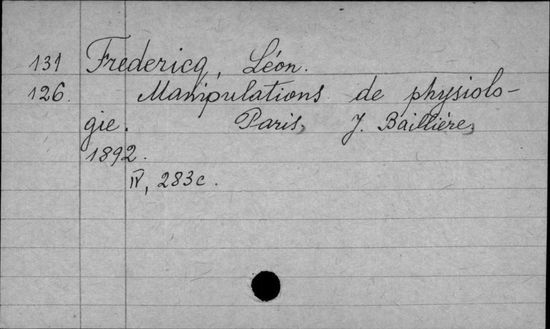 131 Fredericq, Léon.
126. Manipulations de physiolo-
gie. Paris, J. Baillière,
1892.
IV, 283 c.